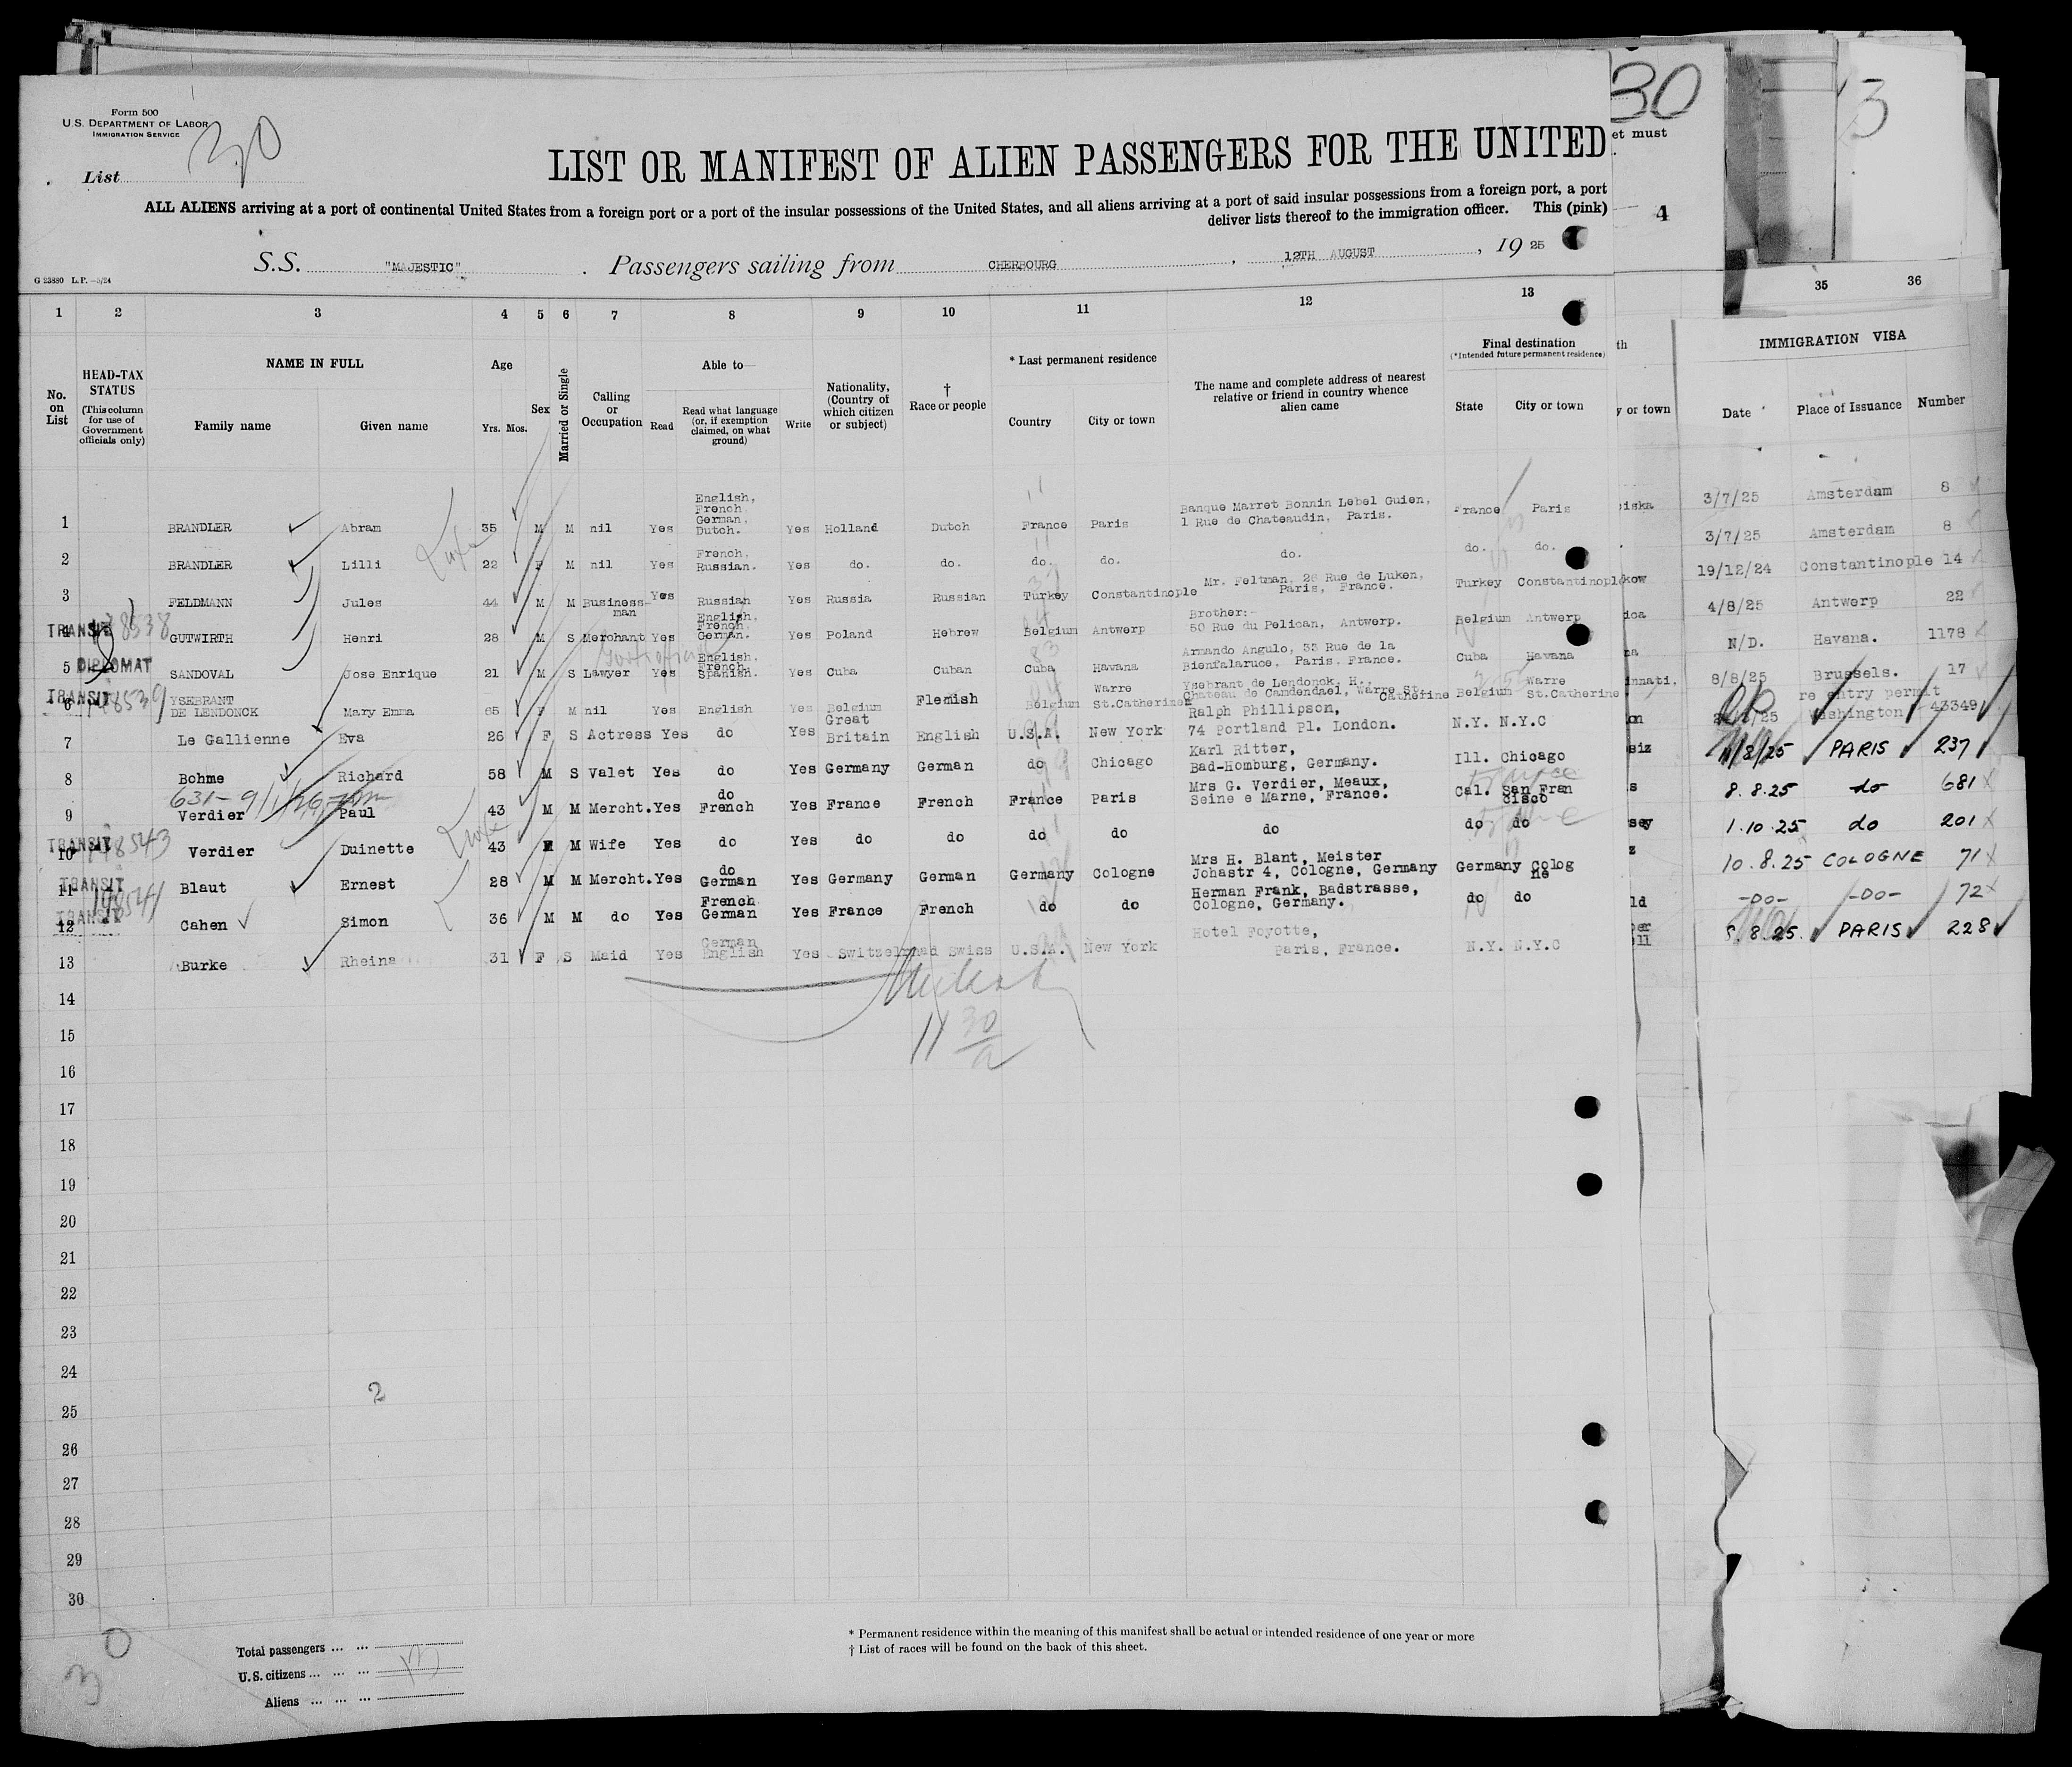 Form 500
U.S. DEPARTMENT OF LABOR
IMMIGRATION SERVICE
List 30
30
et must
3
LIST OR MANIFEST OF ALIEN PASSENGERS FOR THE UNITED
ALL ALIENS arriving at a port of continental United States from a foreign port or a port of the insular possessions of the United States, and all aliens arriving at a port of said insular possessions from a foreign port, a port
deliver lists thereof to the immigration officer. This (pink)
4
S.S. "MAJESTIC" . Passengers sailing from CHERBOURG , 12TH AUGUST , 19 25
G 23880 L.P.—5/24
1 2 3 4 5 6 7 8 9 10 11 12 13 35 36
No. on List
HEAD-TAX STATUS
(This column for use of Government officials only)
NAME IN FULL
Family name Given name
Age
Yrs. Mos.
Sex
Married or Single
Calling or Occupation
Able to—
Read
Read what language (or, if exemption claimed, on what ground)
Write
Nationality, (Country of which citizen or subject)
† Race or people
* Last permanent residence
Country City or town
The name and complete address of nearest relative or friend in country whence alien came
Final destination
(*Intended future permanent residence)
State City or town
th
y or town
IMMIGRATION VISA
Date Place of Issuance Number
1 BRANDLER Abram 35 M M nil Yes English, French German, Dutch. Yes Holland Dutch France Paris Banque Marret Bonnin Lebel Guien, 1 Rue de Chateaudin, Paris. France Paris
3/7/25 Amsterdam 8
2 BRANDLER Lilli 22 F M nil Yes French, Russian. Yes do. do. do. do. do. do. do.
3/7/25 Amsterdam 8
3 FELDMANN Jules 44 M M Business-man Yes Russian Yes Russia Russian Turkey Constantinople Mr. Feltman, 26 Rue de Luken, Paris, France. Turkey Constantinople
19/12/24 Constantinople 14
TRANSIT 148538
4 GUTWIRTH Henri 28 M S Merchant Yes English, French, German. Yes Poland Hebrew Belgium Antwerp Brother:- 50 Rue du Pelican, Antwerp. Belgium Antwerp
4/8/25 Antwerp 22
DIPLOMAT
5 SANDOVAL Jose Enrique 21 M S Lawyer Yes English, French, Spanish. Yes Cuba Cuban Cuba Havana Armando Angulo, 33 Rue de la Bienfalaruce, Paris, France. Cuba Havana
N/D. Havana. 1178
TRANSIT 148539
6 YSEBRANT DE LENDONCK Mary Emma 65 F M nil Yes English Yes Belgium Flemish Belgium Warre St.Catherinem Ysebrant de Lendonck, H., Chateau de Camdendael, Warre St. Catherine Belgium Warre St.Catherine
8/8/25 Brussels. 17
7 Le Gallienne Eva 26 F S Actress Yes do Yes Great Britain English U.S.A. New York Ralph Phillipson, 74 Portland Pl. London. N.Y. N.Y.C
re entry permit
Washington 43349
8 Bohme Richard 58 M S Valet Yes do Yes Germany German do Chicago Karl Ritter, Bad-Homburg, Germany. Ill. Chicago
11/8/25 PARIS 237
9 Verdier Paul 43 M M Mercht. Yes do French Yes France French France Paris Mrs G. Verdier, Meaux, Seine e Marne, France. Cal. San Francisco
8.8.25 do 681
TRANSIT 148543
10 Verdier Duinette 43 M Wife Yes do Yes do do do do do do do
1.10.25 do 201
TRANSIT
11 Blaut Ernest 28 M M Mercht. Yes do German Yes Germany German Germany Cologne Mrs H. Blant, Meister Johastr 4, Cologne, Germany Germany Cologne
10.8.25 COLOGNE 71
148541
TRANSIT
12 Cahen Simon 36 M M do Yes French German Yes France French do do Herman Frank, Badstrasse, Cologne, Germany. do do
-DO- -DO- 72
13 Burke Rheina 31 F S Maid Yes German English Yes Switzelrnad Swiss U.S.A. New York Hotel Foyotte, Paris, France. N.Y. N.Y.C
8.8.25. PARIS 228
14
11 30/a
15
16
17
18
19
20
21
22
23
24
2
25
26
27
28
29
30
30
Total passengers ... ...
U.S. citizens ... ... ...
13
Aliens ... ... ...
* Permanent residence within the meaning of this manifest shall be actual or intended residence of one year or more
† List of races will be found on the back of this sheet.